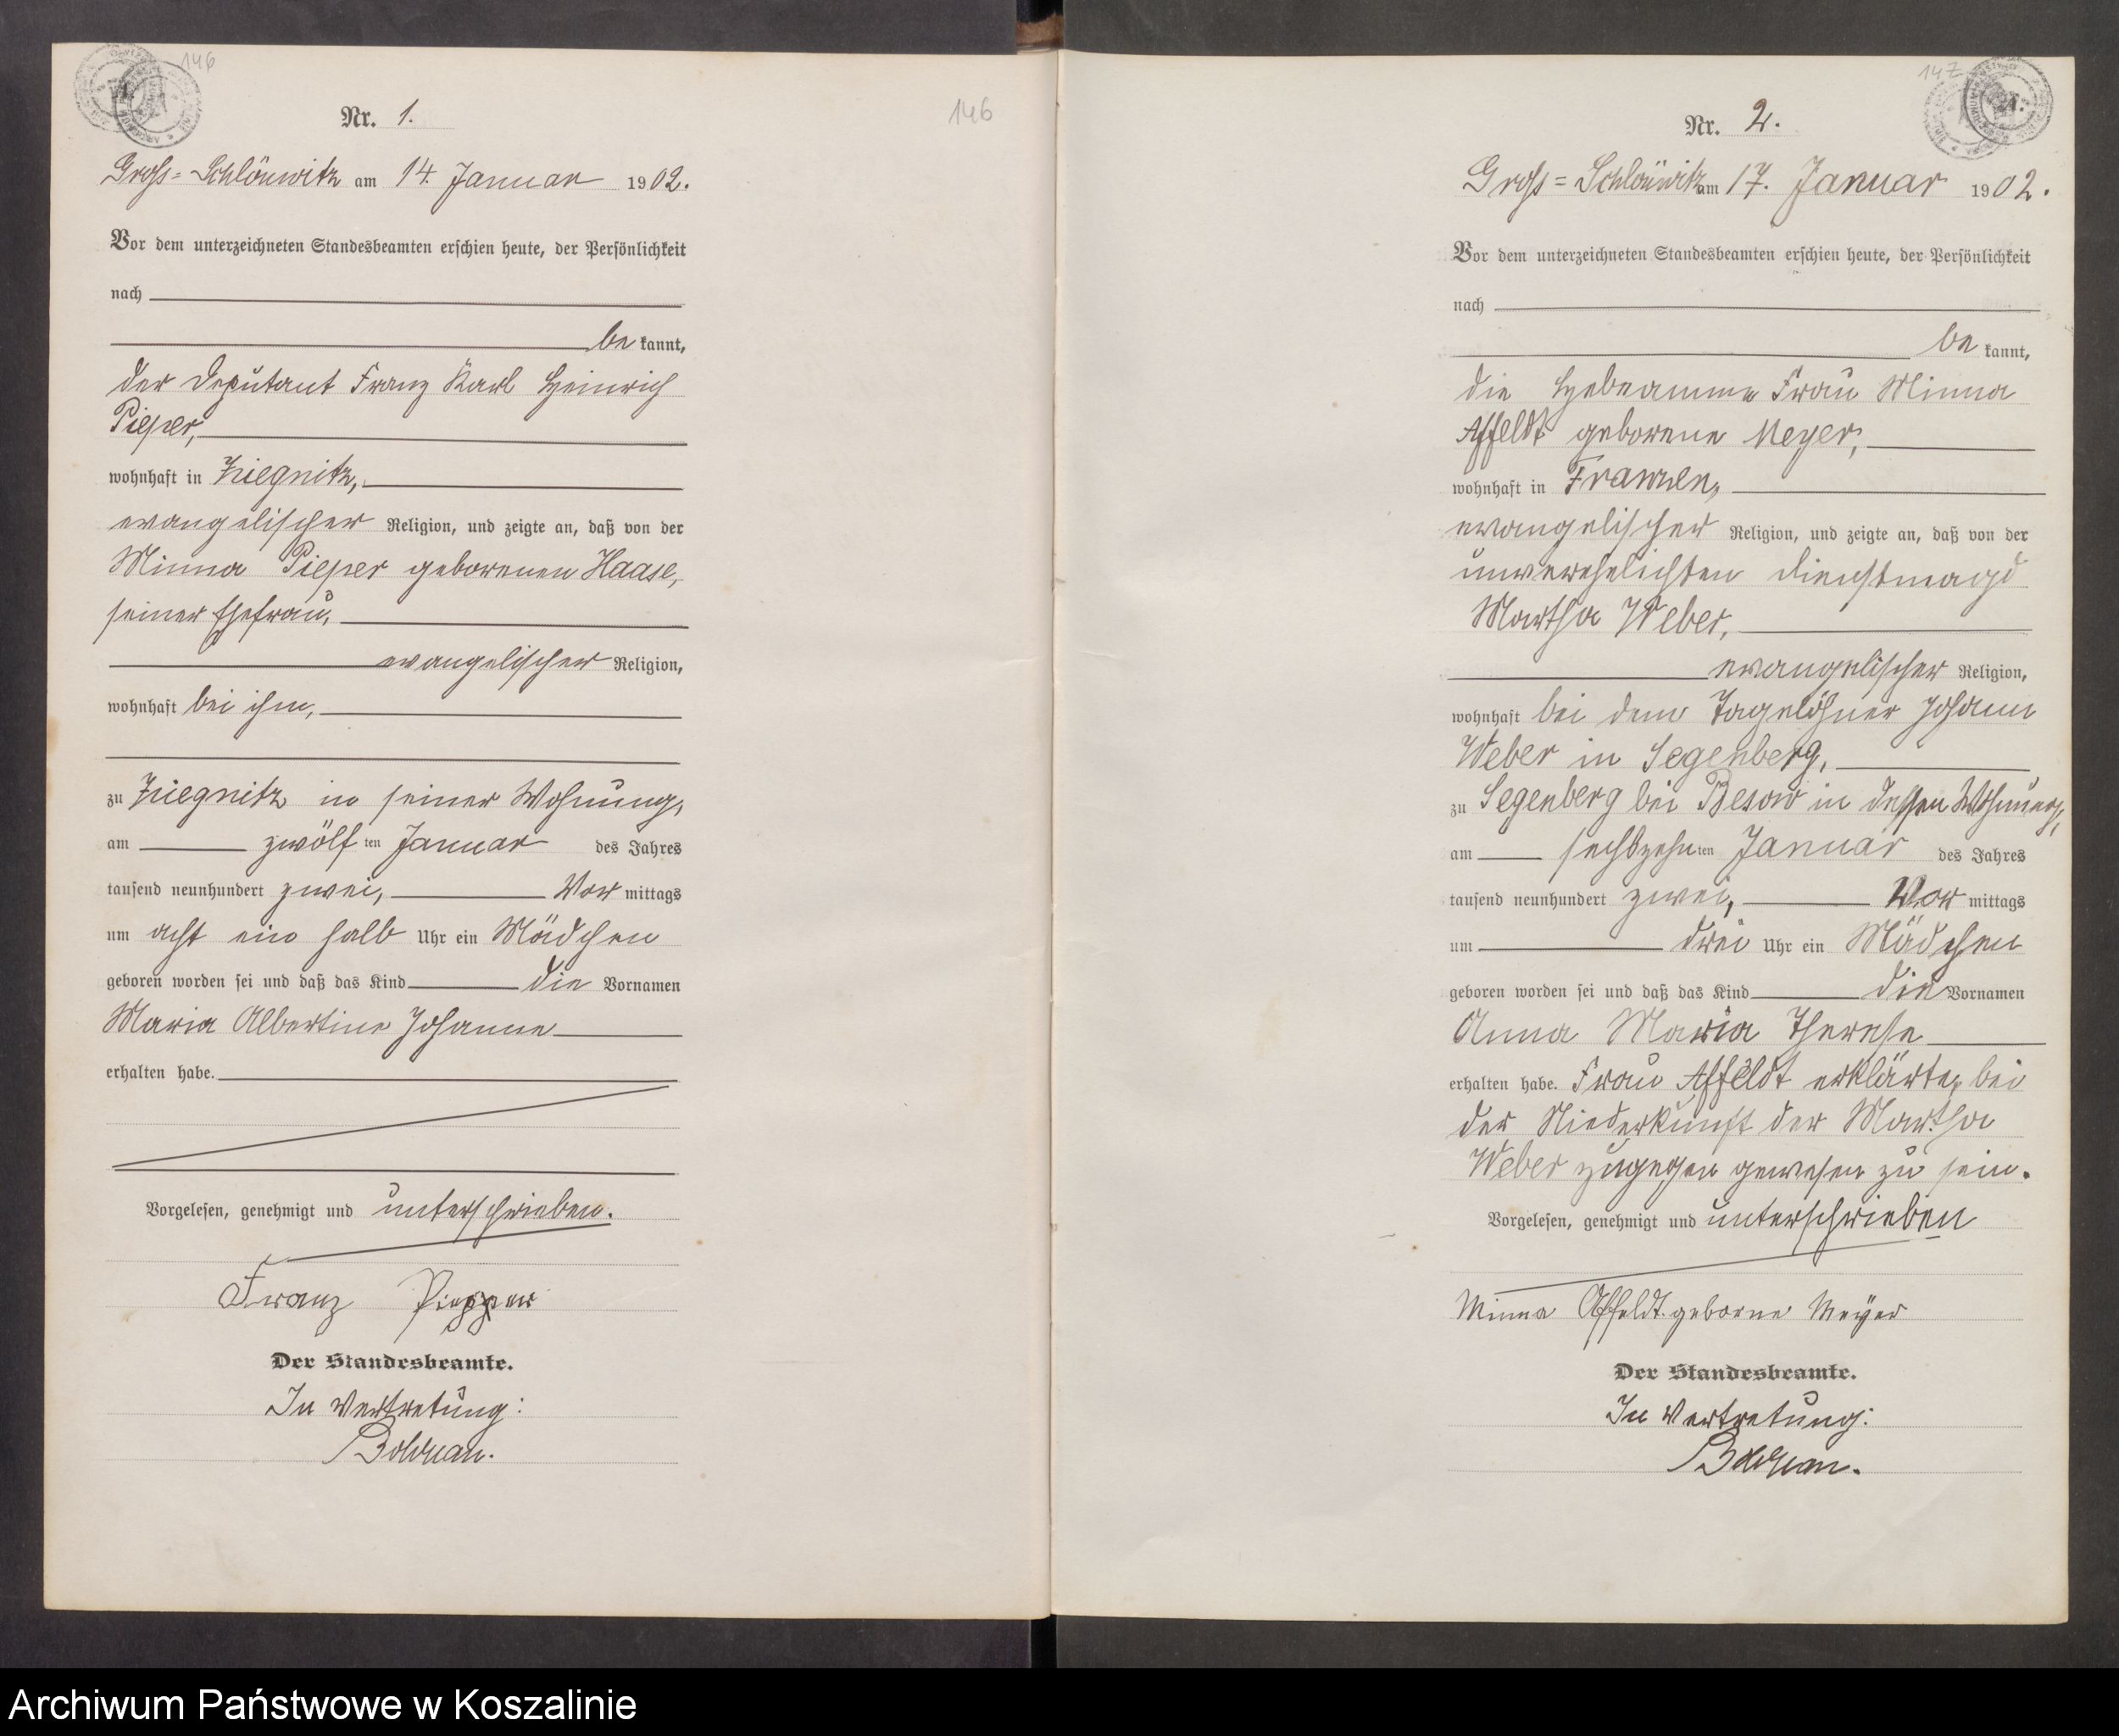 146
Nr. 1.
Gross-Schlönwitz am 14. Januar 1902.
Vor dem unterzeichneten Standesbeamten erschien heute, der Persönlichkeit
nach
be kannt,
der Deputant Franz Karl Heinrich
Pieper,
wohnhaft in Kriegnitz,
evangelischer Religion, und zeigte an, daß von der
Minna Pieper geborenen Haase,
seiner Ehefrau,
evangelischer Religion,
wohnhaft bei ihm,
zu Kriegnitz in seiner Wohnung,
am zwölf ten Januar des Jahres
tausend neunhundert zwei, Vor mittags
um acht ein halb Uhr ein Mädchen
geboren worden sei und daß das Kind die Vornamen
Maria Albertine Johanne
erhalten habe.
Vorgelesen, genehmigt und unterschrieben.
Franz Piepper
Der Standesbeamte.
In Vertretung:
146
147
Nr. 2.
Gross-Schlönwitz am 17. Januar 1902.
Vor dem unterzeichneten Standesbeamten erschien heute, der Persönlichkeit
nach
be kannt,
die Hebeamme Frau Minna
Affeldt geborene Meyer,
wohnhaft in Franzen,
evangelischer Religion, und zeigte an, daß von der
unverehelichten Dienstmagd
Martha Weber,
evangelischer Religion,
wohnhaft bei dem Tagelöhner Johann
Weber in Segenberg,
zu Segenberg bei Besow in dessen Wohnung,
am sechszehn ten Januar des Jahres
tausend neunhundert zwei, Vor mittags
um drei Uhr ein Mädchen
geboren worden sei und daß das Kind die Vornamen
Anna Maria Therese
erhalten habe. Frau Affeldt erklärte, bei
der Niederkunft der Martha
Weber zugegen gewesen zu sein.
Vorgelesen, genehmigt und unterschrieben
Minna Affeldt. geborne Meyer
Der Standesbeamte.
In Vertretung:
Archiwum Państwowe w Koszalinie